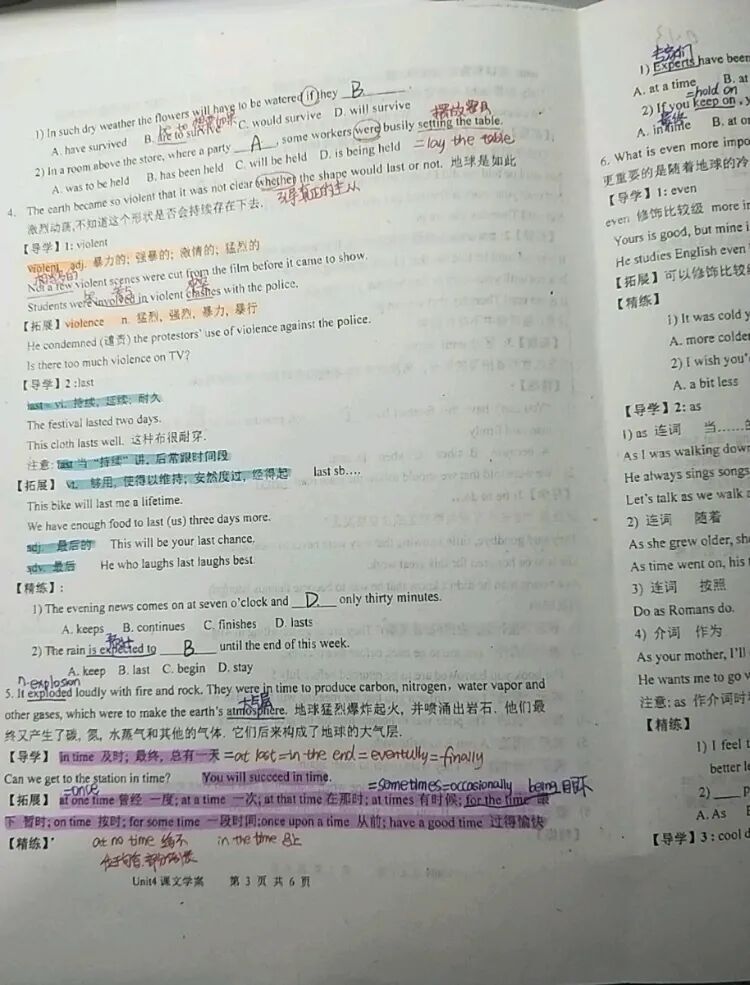 1) In such dry weather the flowers will have to be watered if they B
be to 假需如果
A. have survived B. are to survive C. would survive D. will survive
摆放餐具
2) In a room above the store, where a party A , some workers were busily setting the table.
=lay the table
A. was to be held B. has been held C. will be held D. is being held
4. The earth became so violent that it was not clear whether the shape would last or not. 地球是如此
激烈动荡,不知道这个形状是否会持续存在下去.
【导学】1: violent
violent adj. 暴力的; 强暴的; 激情的; 猛烈的
Not a few violent scenes were cut from the film before it came to show.
Students were involved in violent clashes with the police.
【拓展】violence n. 猛烈, 强烈, 暴力, 暴行
He condemned (谴责) the protestors' use of violence against the police.
Is there too much violence on TV?
【导学】2 :last
last = vi. 持续, 延续; 耐久
The festival lasted two days.
This cloth lasts well. 这种布很耐穿.
注意: last 当 "持续" 讲, 后常跟时间段
【拓展】vt. 够用, 使得以维持; 安然度过, 经得起 last sb....
This bike will last me a lifetime.
We have enough food to last (us) three days more.
adj. 最后的 This will be your last chance.
adv. 最后 He who laughs last laughs best.
【精练】:
1) The evening news comes on at seven o'clock and D only thirty minutes.
A. keeps B. continues C. finishes D. lasts
预计
2) The rain is expected to B until the end of this week.
A. keep B. last C. begin D. stay
n.explosion
5. It exploded loudly with fire and rock. They were in time to produce carbon, nitrogen, water vapor and
大气层
other gases, which were to make the earth's atmosphere. 地球猛烈爆炸起火, 并喷涌出岩石. 他们最
终又产生了碳, 氮, 水蒸气和其他的气体. 它们后来构成了地球的大气层.
【导学】in time 及时; 最终, 总有一天 =at last=in the end=eventully=finally
Can we get to the station in time? You will succeed in time.
=once =sometimes=occasionally being 目环
【拓展】at one time 曾经 一度; at a time 一次; at that time 在那时; at times 有时候; for the time
下 暂时; on time 按时; for some time 一段时间;once upon a time 从前; have a good time 过得愉快
【精练】 at no time 绝不 in the time
Unit4 课文学案 第 3 页 共 6 页
专家们
1) Experts have been
A. at a time B. at
=hold on
2) If you keep on
最终
A. in time B. at on
6. What is even more impo
更重要的是随着地球的冷
【导学】1: even
even 修饰比较级 more in
Yours is good, but mine i
He studies English even
【拓展】可以修饰比较级
【精练】
i) It was cold y
A. more colde
2) I wish you'
A. a bit less
【导学】2: as
1) as 连词 当......的
As I was walking down
He always sings songs
Let's talk as we walk a
2) 连词 随着
As she grew older, sh
As time went on, his
3) 连词 按照
Do as Romans do.
4) 介词 作为
As your mother, I'll
He wants me to go w
注意: as 作介词时
【精练】
1) I feel t
better le
2) p
A. As B
【导学】3: cool d